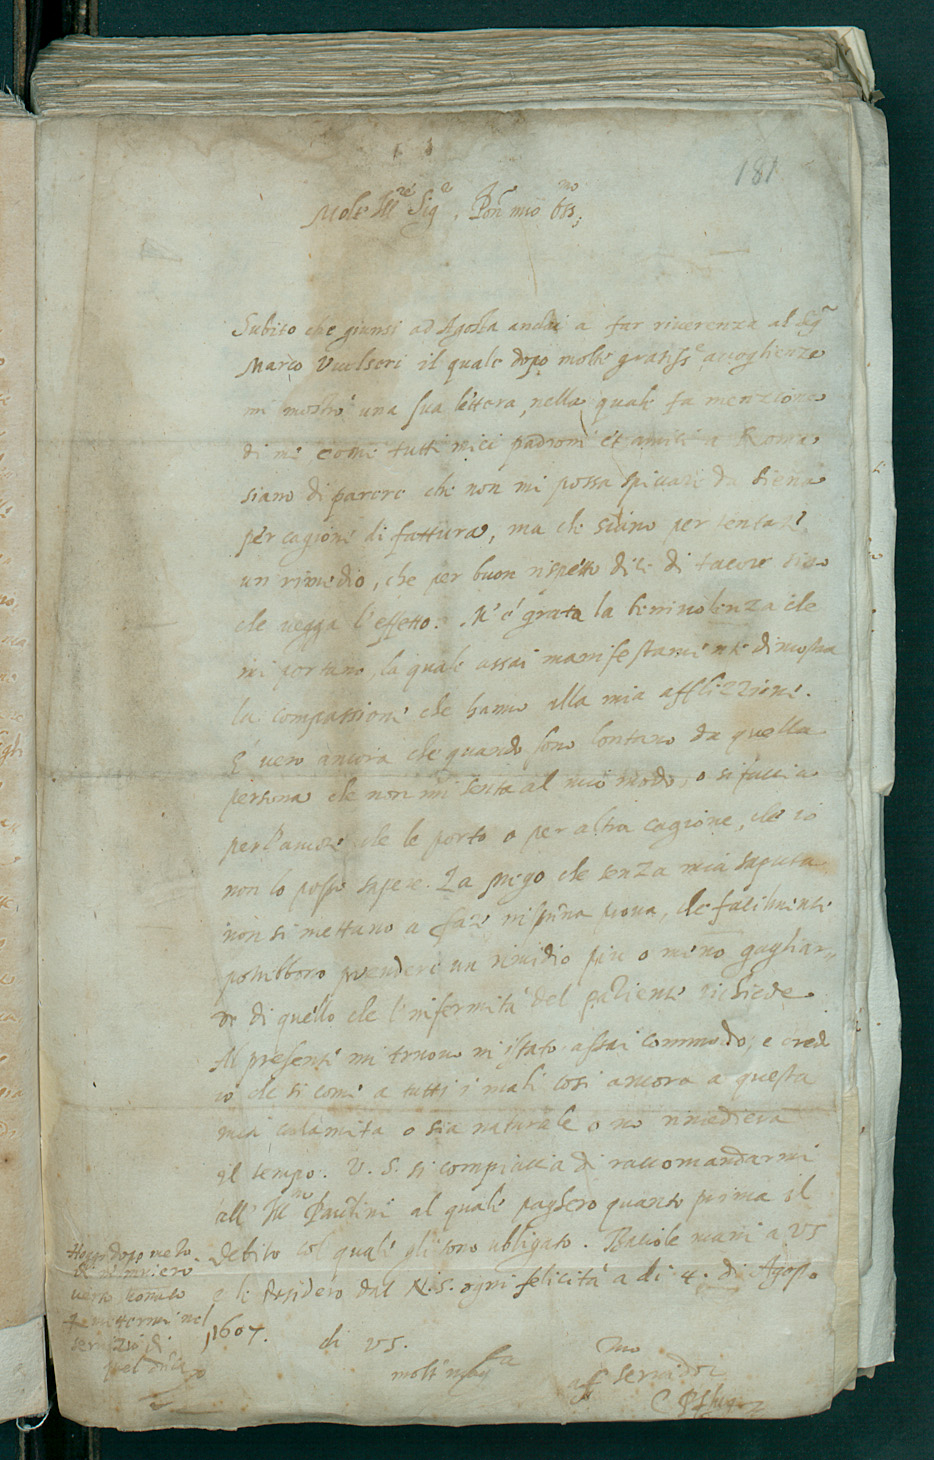 181
Molt' Ill.re Sig.r Pōn mio oss.mo
Subito che giunsi ad Agosta andai a far riverenza al Sig.
Marco Vuelseri il quale dopo molte gratiss.e accoglienze
mi mostrò una sua lettera, nella quale fa menzione
di me come tutti miei padroni et amici a Roma
siano di parere che non mi possa spiccare da Siena
per cagione di fattura, ma che siano per tentare
un rimedio, che per buon rispetto dice di tacere sino
che vegga l'effetto. M'è grata la benivolenza che
mi portano, la quale assai manifestamente dimostra
la compassione che hanno alla mia afflizzione.
È vero ancora che quando sono lontano da quella
persona che non mi senta al mio modo, o si faccia
per l'amore che le porto o per altra cagione, che io
non lo posso sapere. La prego che senza mia saputa
non si mettano a fare nissuna prova, che facilmente
potrebbono prendere un rimedio piu o meno gagliar„
do di quello che l'infermità del paziente richiede.
Al presente mi truovo in istato assai commodo, e cred
io che si come a tutti i mali cosi ancora a questa
mia calamita o sia naturale o no rimediera
il tempo. V. S. si compiaccia di raccomandarmi
all' Ill.re Paulini al quale paghero quanto prima il
debito col quale gli sono obligato. Bacio le mani a VS
e le desidero dal N.S. ogni felicità a di 4. di Agosto
1607.
di VS.
molt'
aff.mo servidor
C Pflug
Hoggi dopo
servizio di
quel